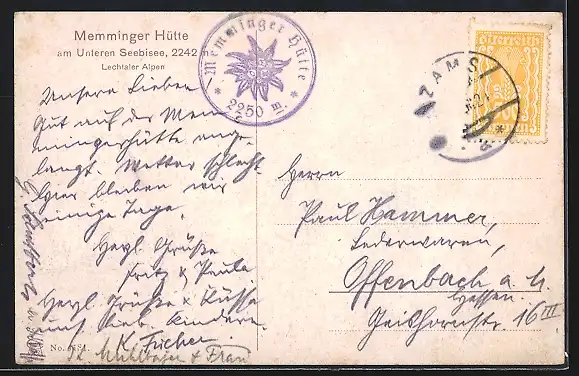 Memminger Hütte
am Unteren Seebisee, 2242 m
Lechtaler Alpen
* Memminger Hütte *
2250 m.
Österreich
ZAMS
Unsere Lieben
Gut auf der Mem-
mingerhütte ange-
langt. Wetter schlecht
Hier bleiben wir
einige Tage.
Herzl. Grüße
Fritz & Paula
Herzl. Grüße & Küsse
Kindern.
K. Fucher.
Mühlbauer + Frau
Herrn
Paul Hammer,
Lederwaren,
Offenbach a. M.
Hessen
16 III
No.